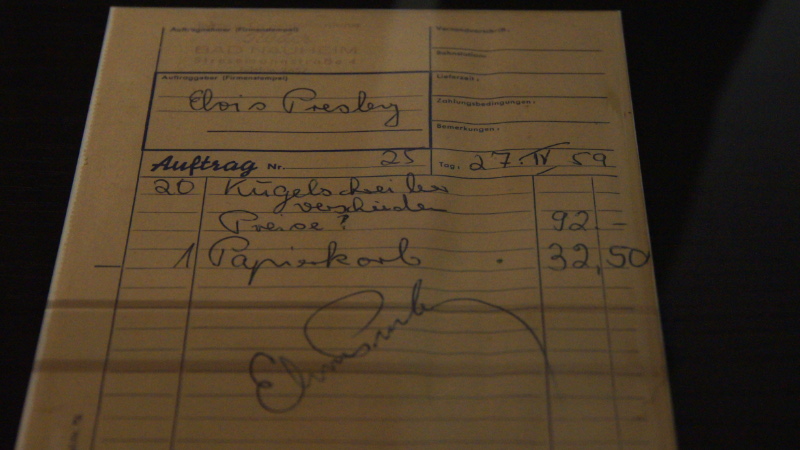 Auftragnehmer (Firmenstempel)
BAD NAUHEIM
Stresemannstraße 4
Versandvorschrift:
Lieferzeit:
Zahlungsbedingungen:
Bemerkungen:
Auftraggeber (Firmenstempel)
Elvis Presley
Auftrag Nr. 25 Tag: 27. IV 59
20 Kugelschreiber
verschieden
Preise? 92.-
1 Papierkorb 32,50
Elvis Presley